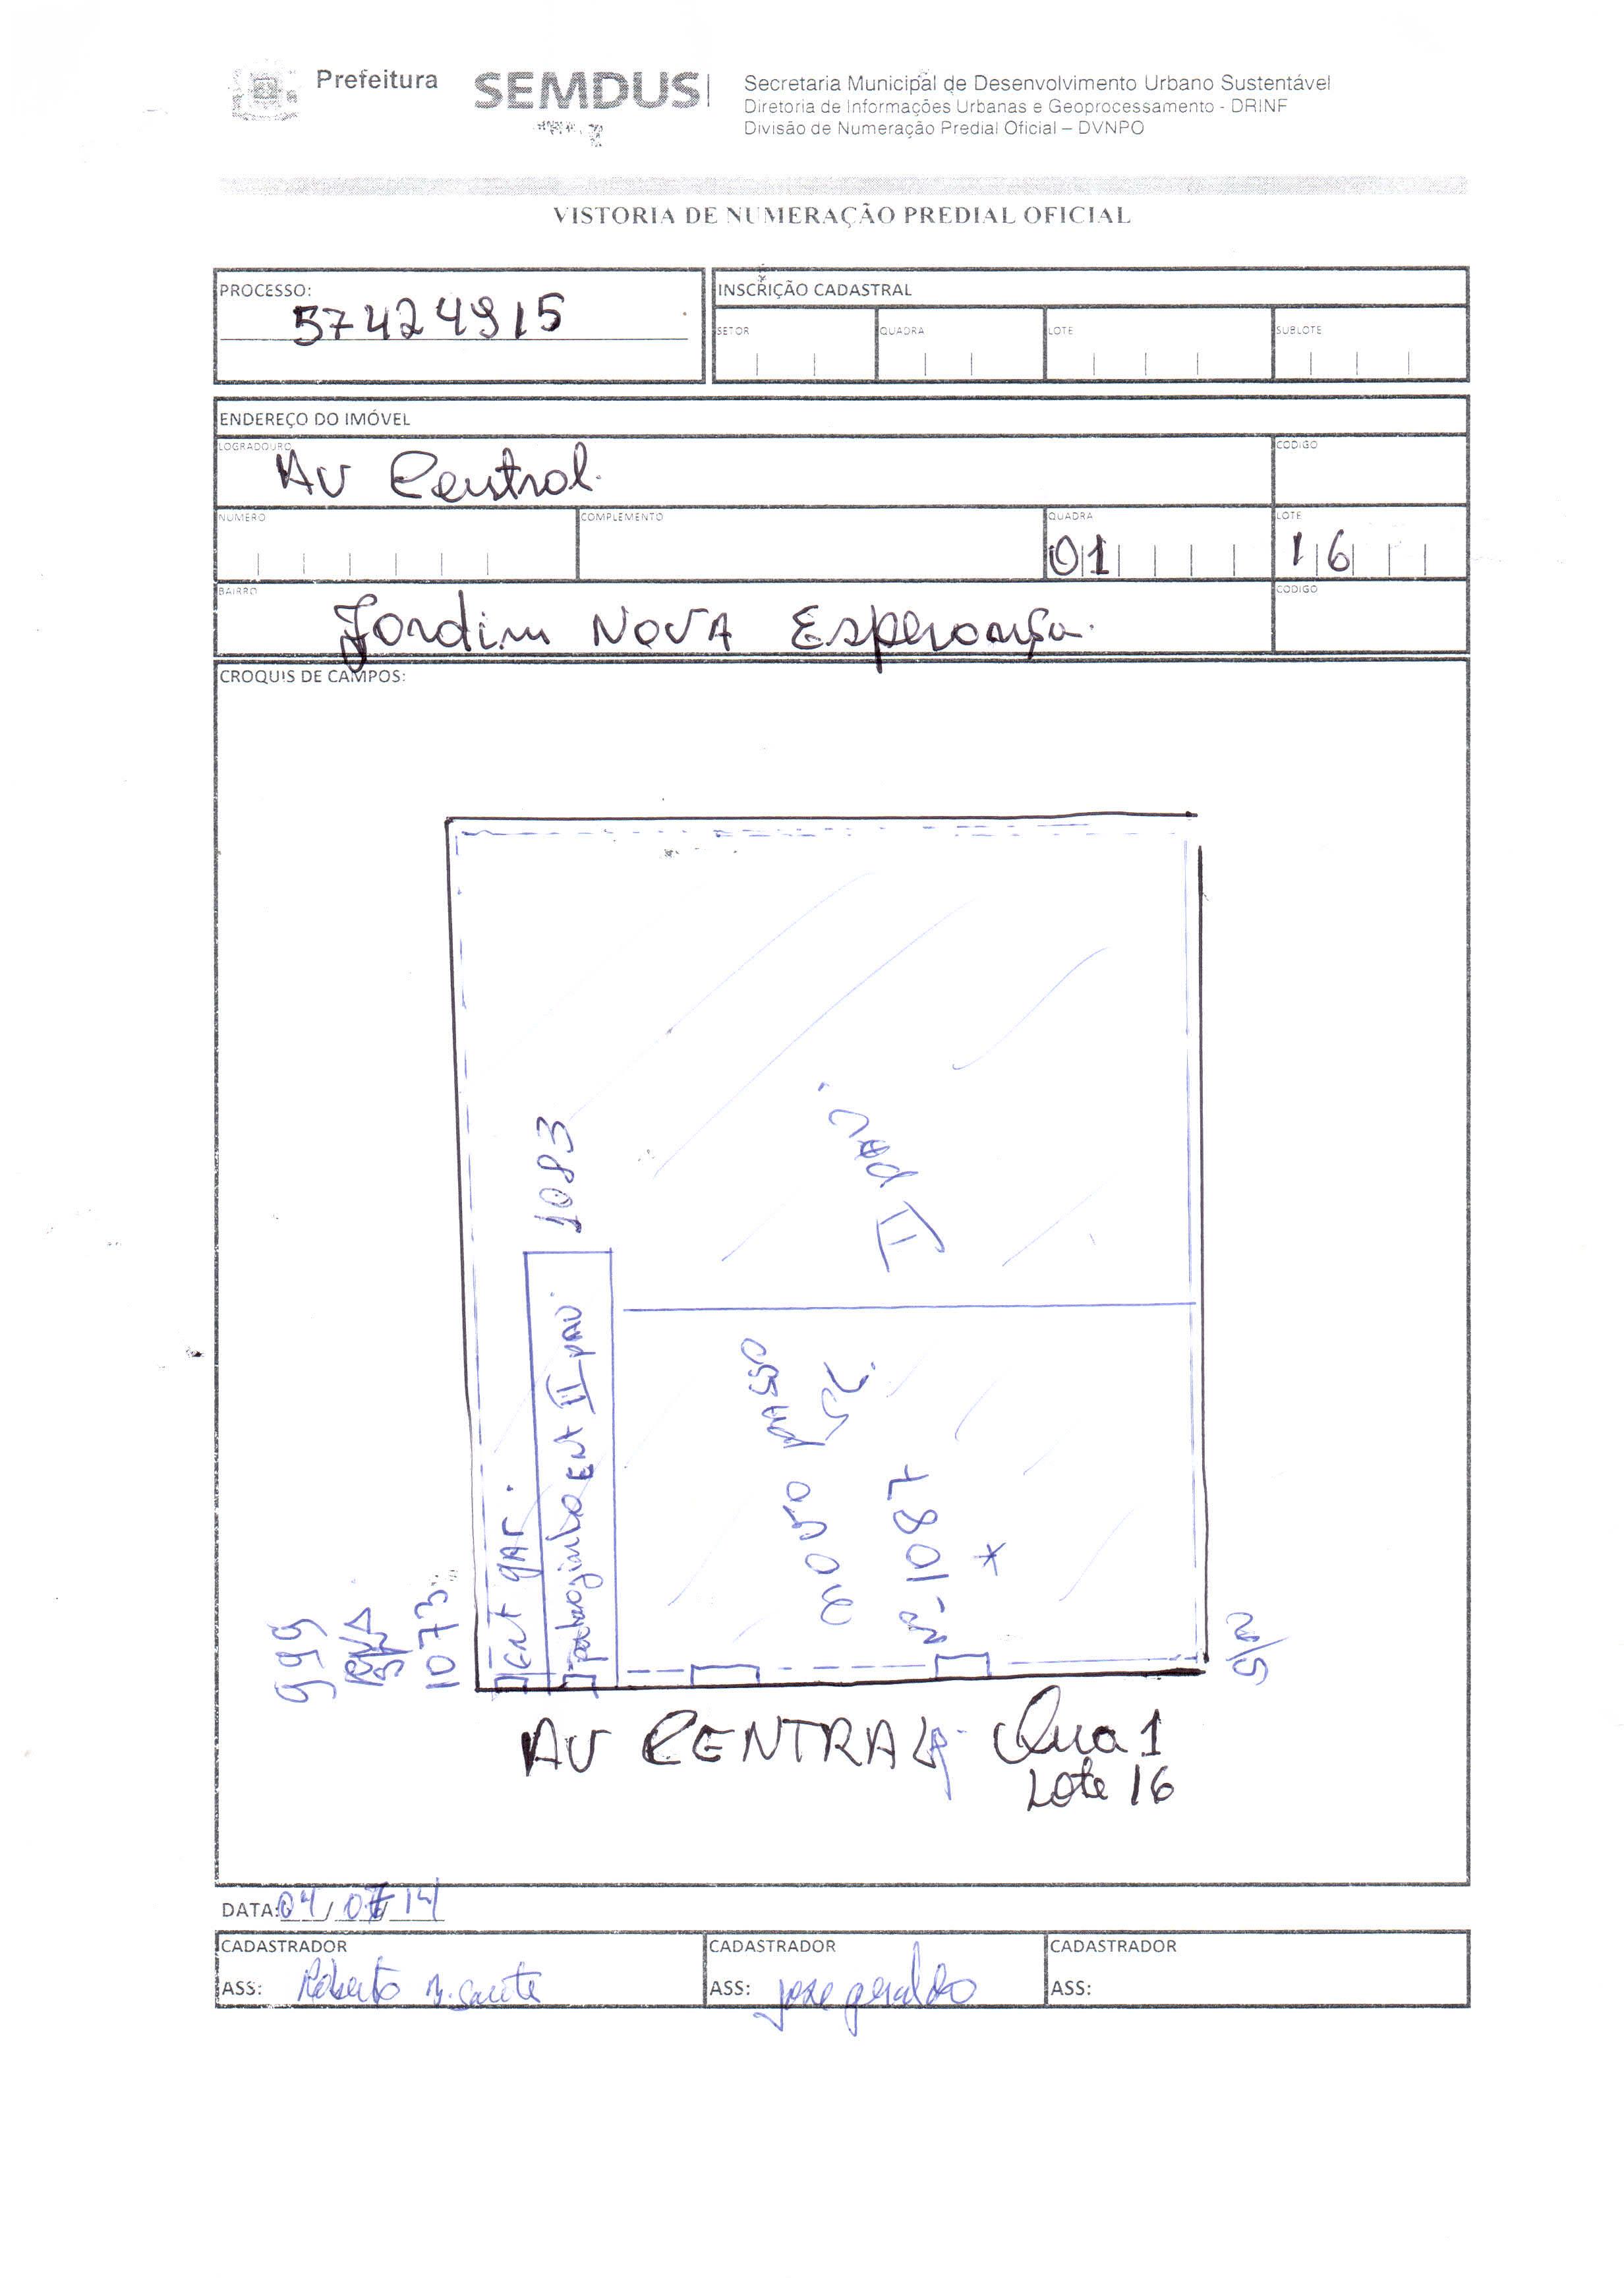 Prefeitura
SEMDUS
Secretaria Municipal de Desenvolvimento Urbano Sustentável
Diretoria de Informações Urbanas e Geoprocessamento - DRINF
Divisão de Numeração Predial Oficial – DVNPO
VISTORIA DE NUMERAÇÃO PREDIAL OFICIAL
PROCESSO:
57424915
INSCRIÇÃO CADASTRAL
SETOR QUADRA LOTE SUBLOTE
ENDEREÇO DO IMÓVEL
LOGRADOURO CODIGO
AV Central.
NUMERO COMPLEMENTO QUADRA LOTE
01 16
BAIRRO CODIGO
Jardim NOVA Esperança.
CROQUIS DE CAMPOS:
II PAV.
1083
ENt II PAV.
ENt gAr.
Nº-1087
*
999
1073
S/N
AV CENTRAL Qua 1
Lote 16
DATA: 04/07/14
CADASTRADOR CADASTRADOR CADASTRADOR
ASS: Roberto ASS: jose geraldo ASS: